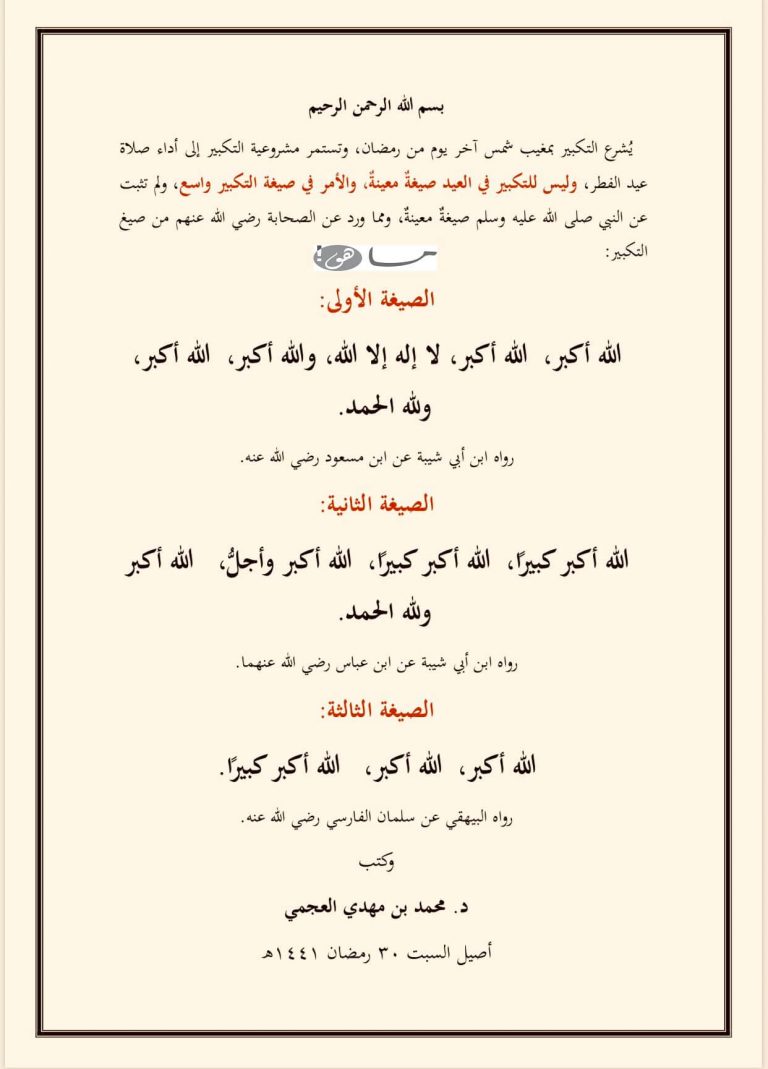 بسم الله الرحمن الرحيم
يُشرع التكبير بمغيب شمس آخر يوم من رمضان، وتستمر مشروعية التكبير إلى أداء صلاة
عيد الفطر، وليس للتكبير في العيد صيغةٌ معينةٌ، والأمر في صيغة التكبير واسع، ولم تثبت
عن النبي صلى الله عليه وسلم صيغةٌ معينةٌ، ومما ورد عن الصحابة رضي الله عنهم من صيغ
التكبير:
ما هو؟
الصيغة الأولى:
الله أكبر، الله أكبر، لا إله إلا الله، والله أكبر، الله أكبر،
ولله الحمد.
رواه ابن أبي شيبة عن ابن مسعود رضي الله عنه.
الصيغة الثانية:
الله أكبر كبيرًا، الله أكبر كبيرًا، الله أكبر وأجلُّ، الله أكبر
ولله الحمد.
رواه ابن أبي شيبة عن ابن عباس رضي الله عنهما.
الصيغة الثالثة:
الله أكبر، الله أكبر، الله أكبر كبيرًا.
رواه البيهقي عن سلمان الفارسي رضي الله عنه.
وكتب
د. محمد بن مهدي العجمي
أصيل السبت ٣٠ رمضان ١٤٤١هـ